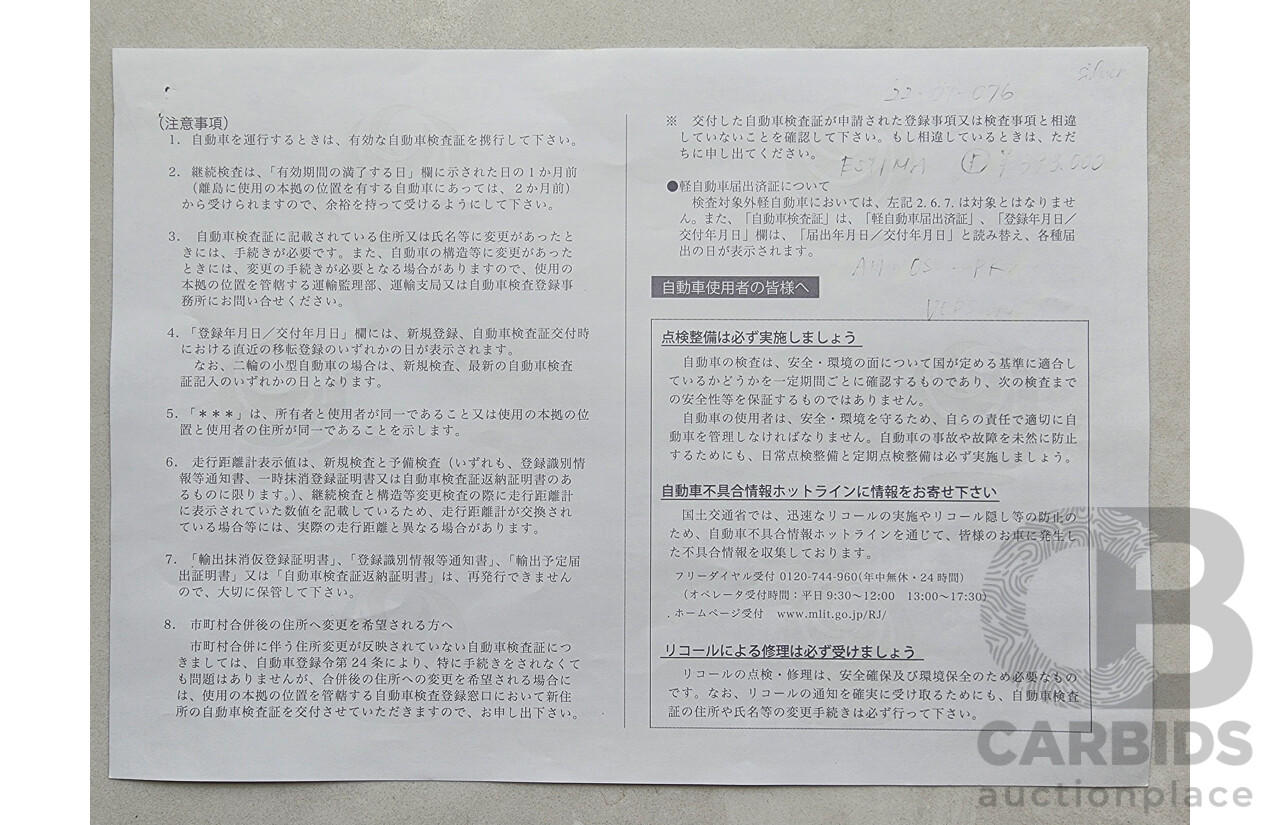 (注意事項)
1. 自動車を運行するときは、有効な自動車検査証を携行して下さい。
2. 継続検査は、「有効期間の満了する日」欄に示された日の1か月前
(離島に使用の本拠の位置を有する自動車にあっては、2か月前)
から受けられますので、余裕を持って受けるようにして下さい。
3. 自動車検査証に記載されている住所又は氏名等に変更があったと
きには、手続きが必要です。また、自動車の構造等に変更があった
ときには、変更の手続きが必要となる場合がありますので、使用の
本拠の位置を管轄する運輸監理部、運輸支局又は自動車検査登録事
務所にお問い合せください。
4. 「登録年月日/交付年月日」欄には、新規登録、自動車検査証交付時
における直近の移転登録のいずれかの日が表示されます。
なお、二輪の小型自動車の場合は、新規検査、最新の自動車検査
証記入のいずれかの日となります。
5. 「***」は、所有者と使用者が同一であること又は使用の本拠の位
置と使用者の住所が同一であることを示します。
6. 走行距離計表示値は、新規検査と予備検査(いずれも、登録識別情
報等通知書、一時抹消登録証明書又は自動車検査証返納証明書のあ
るものに限ります。)、継続検査と構造等変更検査の際に走行距離計
に表示されていた数値を記載しているため、走行距離計が交換され
ている場合等には、実際の走行距離と異なる場合があります。
7. 「輸出抹消仮登録証明書」、「登録識別情報等通知書」、「輸出予定届
出証明書」又は「自動車検査証返納証明書」は、再発行できません
ので、大切に保管して下さい。
8. 市町村合併後の住所へ変更を希望される方へ
市町村合併に伴う住所変更が反映されていない自動車検査証につ
きましては、自動車登録令第24条により、特に手続きをされなくて
も問題はありませんが、合併後の住所への変更を希望される場合に
は、使用の本拠の位置を管轄する自動車検査登録窓口において新住
所の自動車検査証を交付させていただきますので、お申し出下さい。
silver
※ 交付した自動車検査証が申請された登録事項又は検査事項と相違
していないことを確認して下さい。もし相違しているときは、ただ
ちに申し出てください。
ESTIMA
●軽自動車届出済証について
検査対象外軽自動車においては、左記2. 6. 7. は対象とはなりませ
ん。また、「自動車検査証」は、「軽自動車届出済証」、「登録年月日/
交付年月日」欄は、「届出年月日/交付年月日」と読み替え、各種届
出の日が表示されます。
自動車使用者の皆様へ
点検整備は必ず実施しましょう
自動車の検査は、安全・環境の面について国が定める基準に適合し
ているかどうかを一定期間ごとに確認するものであり、次の検査まで
の安全性等を保証するものではありません。
自動車の使用者は、安全・環境を守るため、自らの責任で適切に自
動車を管理しなければなりません。自動車の事故や故障を未然に防止
するためにも、日常点検整備と定期点検整備は必ず実施しましょう。
自動車不具合情報ホットラインに情報をお寄せ下さい
国土交通省では、迅速なリコールの実施やリコール隠し等の防止の
ため、自動車不具合情報ホットラインを通じて、皆様のお車に発生し
た不具合情報を収集しております。
フリーダイヤル受付 0120-744-960(年中無休・24時間)
(オペレータ受付時間:平日9:30~12:00 13:00~17:30)
ホームページ受付 www.mlit.go.jp/RJ/
リコールによる修理は必ず受けましょう
リコールの点検・修理は、安全確保及び環境保全のため必要なもの
です。なお、リコールの通知を確実に受け取るためにも、自動車検査
証の住所や氏名等の変更手続きは必ず行って下さい。
CB
CARBIDS
auctionplace